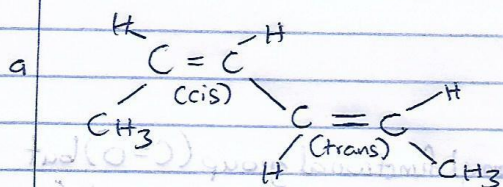 H H
a C = C
(cis)
CH3 C = C H
(trans)
H CH3